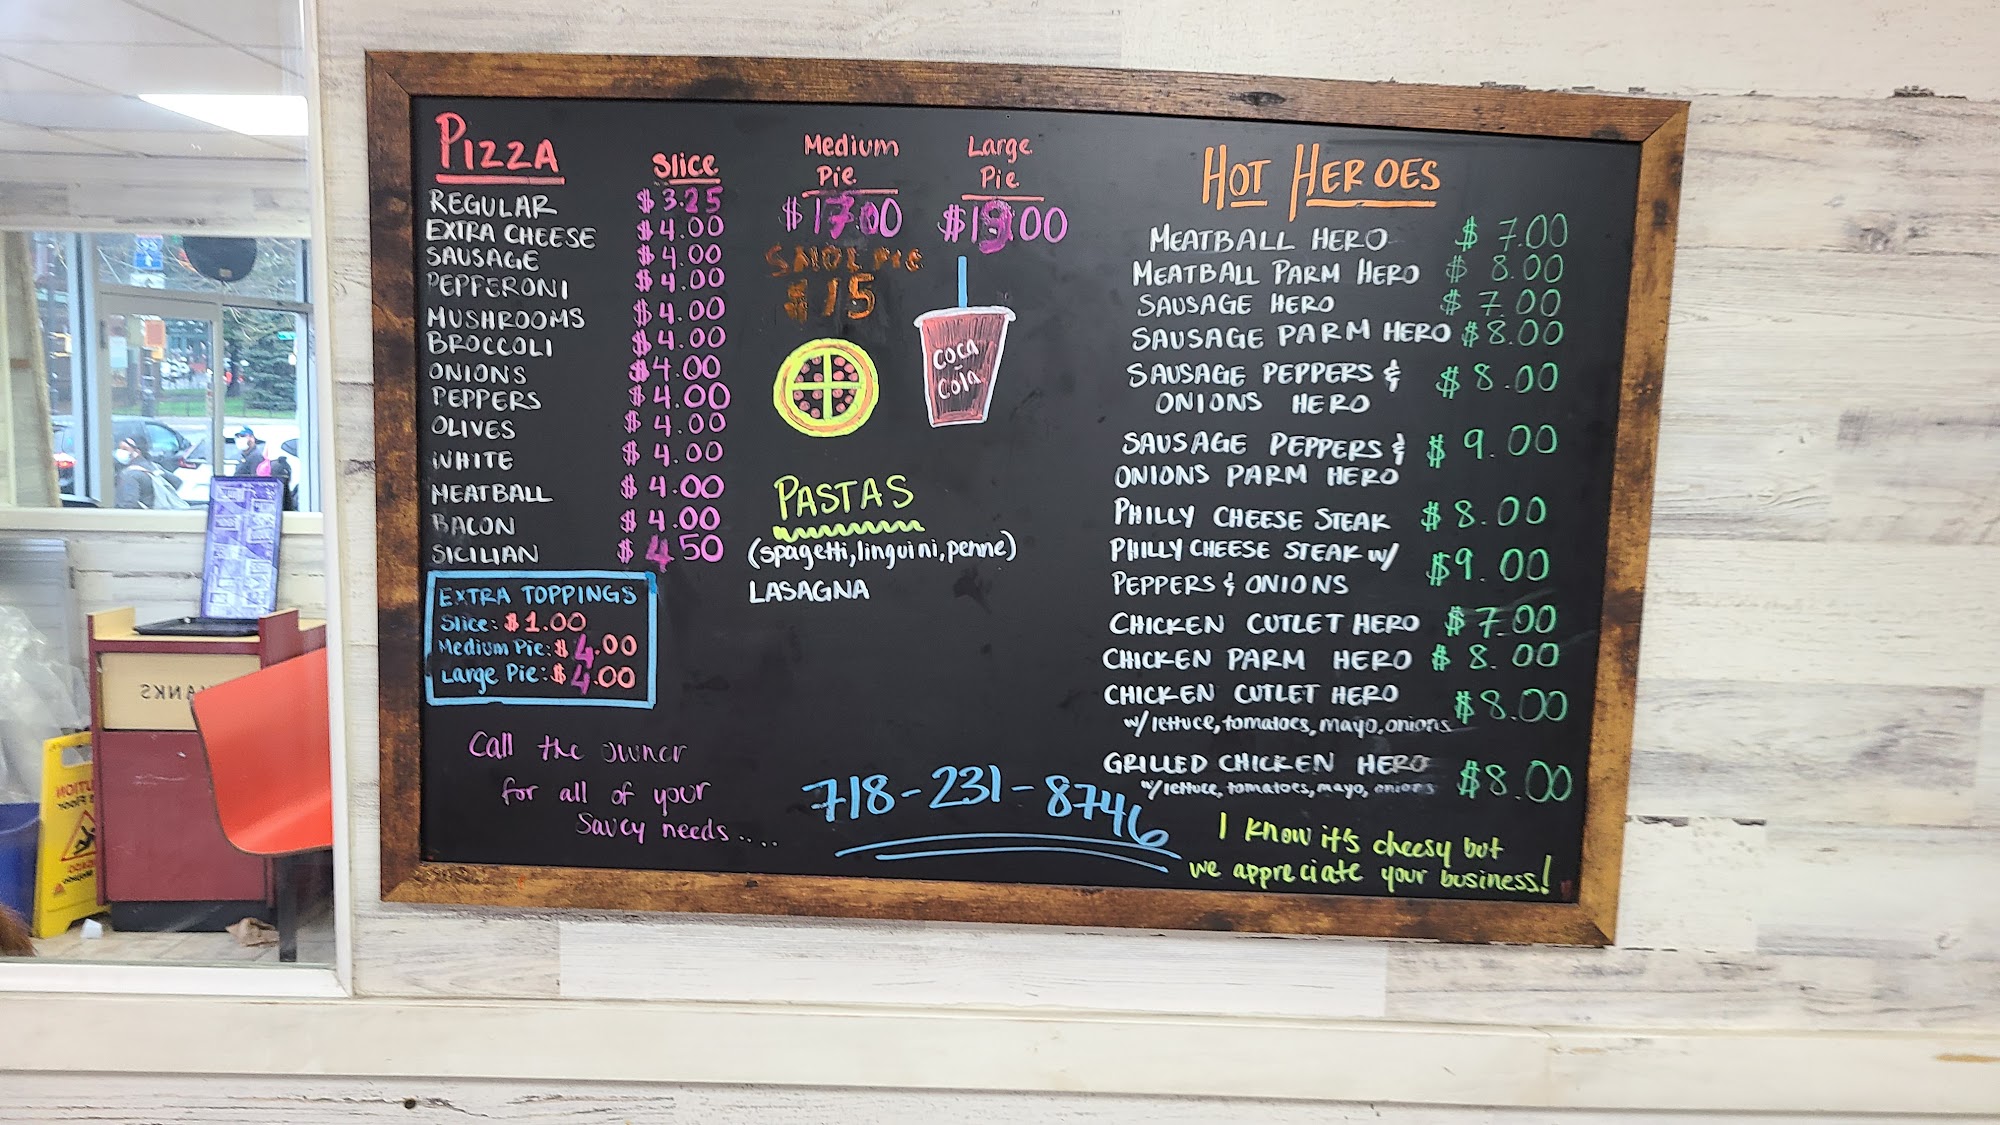 PIZZA
Slice
REGULAR $3.25
EXTRA CHEESE $4.00
SAUSAGE $4.00
PEPPERONI $4.00
MUSHROOMS $4.00
BROCCOLI $4.00
ONIONS $4.00
PEPPERS $4.00
OLIVES $4.00
WHITE $4.00
MEATBALL $4.00
BACON $4.00
SICILIAN $4.50
EXTRA TOPPINGS
Slice: $1.00
Medium Pie: $4.00
Large Pie: $4.00
Call the owner
for all of your
Saucy needs....
Medium
Pie
$17.00
Large
Pie
$19.00
PIE
$15
COCA
-
Cola
PASTAS
(spagetti, linguini, penne)
LASAGNA
718-231-8746
HOT HEROES
MEATBALL HERO $7.00
MEATBALL PARM HERO $8.00
SAUSAGE HERO $7.00
SAUSAGE PARM HERO $8.00
SAUSAGE PEPPERS & $8.00
ONIONS HERO
SAUSAGE PEPPERS & $9.00
ONIONS PARM HERO
PHILLY CHEESE STEAK $8.00
PHILLY CHEESE STEAK w/
PEPPERS & ONIONS $9.00
CHICKEN CUTLET HERO $7.00
CHICKEN PARM HERO $8.00
CHICKEN CUTLET HERO $8.00
w/lettuce, tomatoes, mayo, onions
GRILLED CHICKEN HERO $8.00
w/lettuce, tomatoes, mayo, onions
I know it's cheesy but
we appreciate your business!